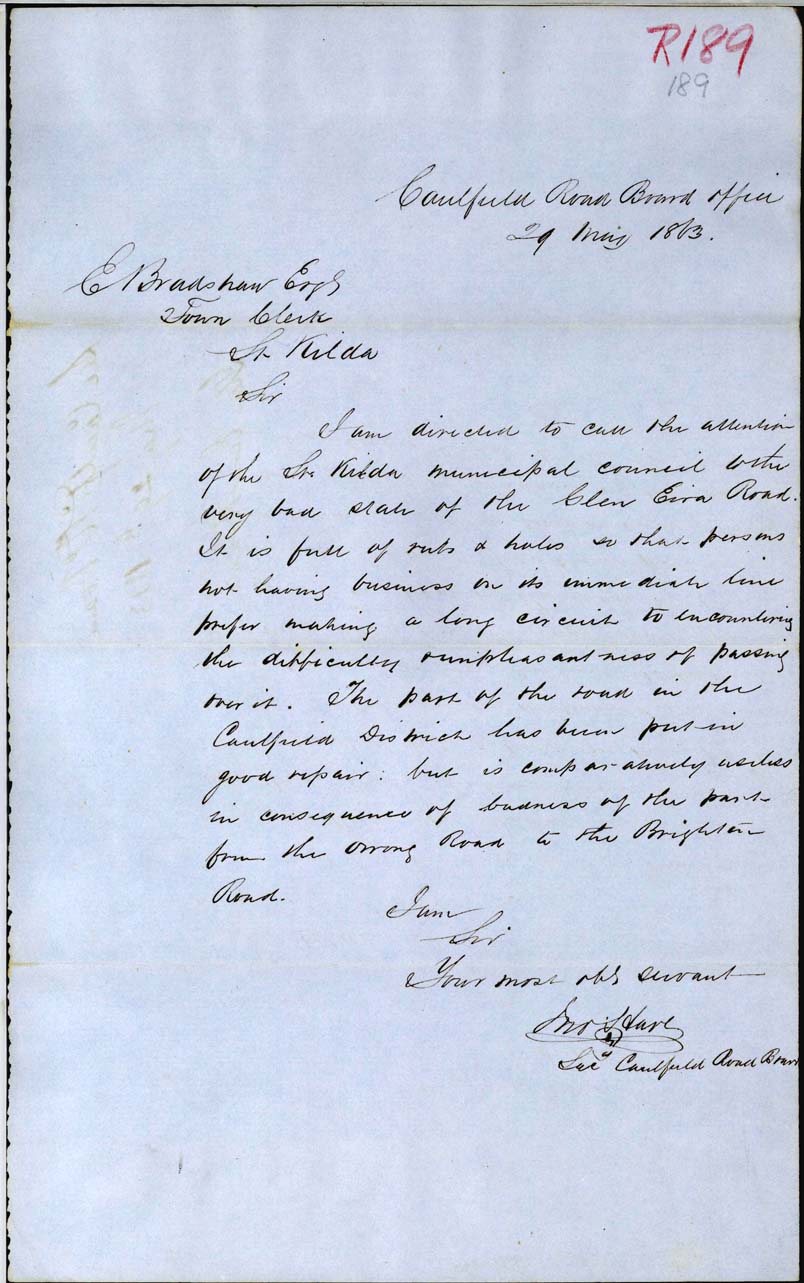 R189
189
Caulfield Road Board Office
29 May 1863.
E Bradshaw Esqr
Town Clerk
St Kilda
Sir
I am directed to call the attention
of the St. Kilda municipal council to the
very bad state of the Glen Eira Road.
It is full of ruts & holes so that persons
not having business on its immediate line
prefer making a long circuit to encountering
the difficulty & unpleasantness of passing
over it. The part of the road in the
Caulfield District has been put in
good repair: but is comparatively useless
in consequence of badness of the part
from the Orrong Road to the Brighton
Road.
I am
Sir
Your most obt servant
Jno
Secy Caulfield Road Board